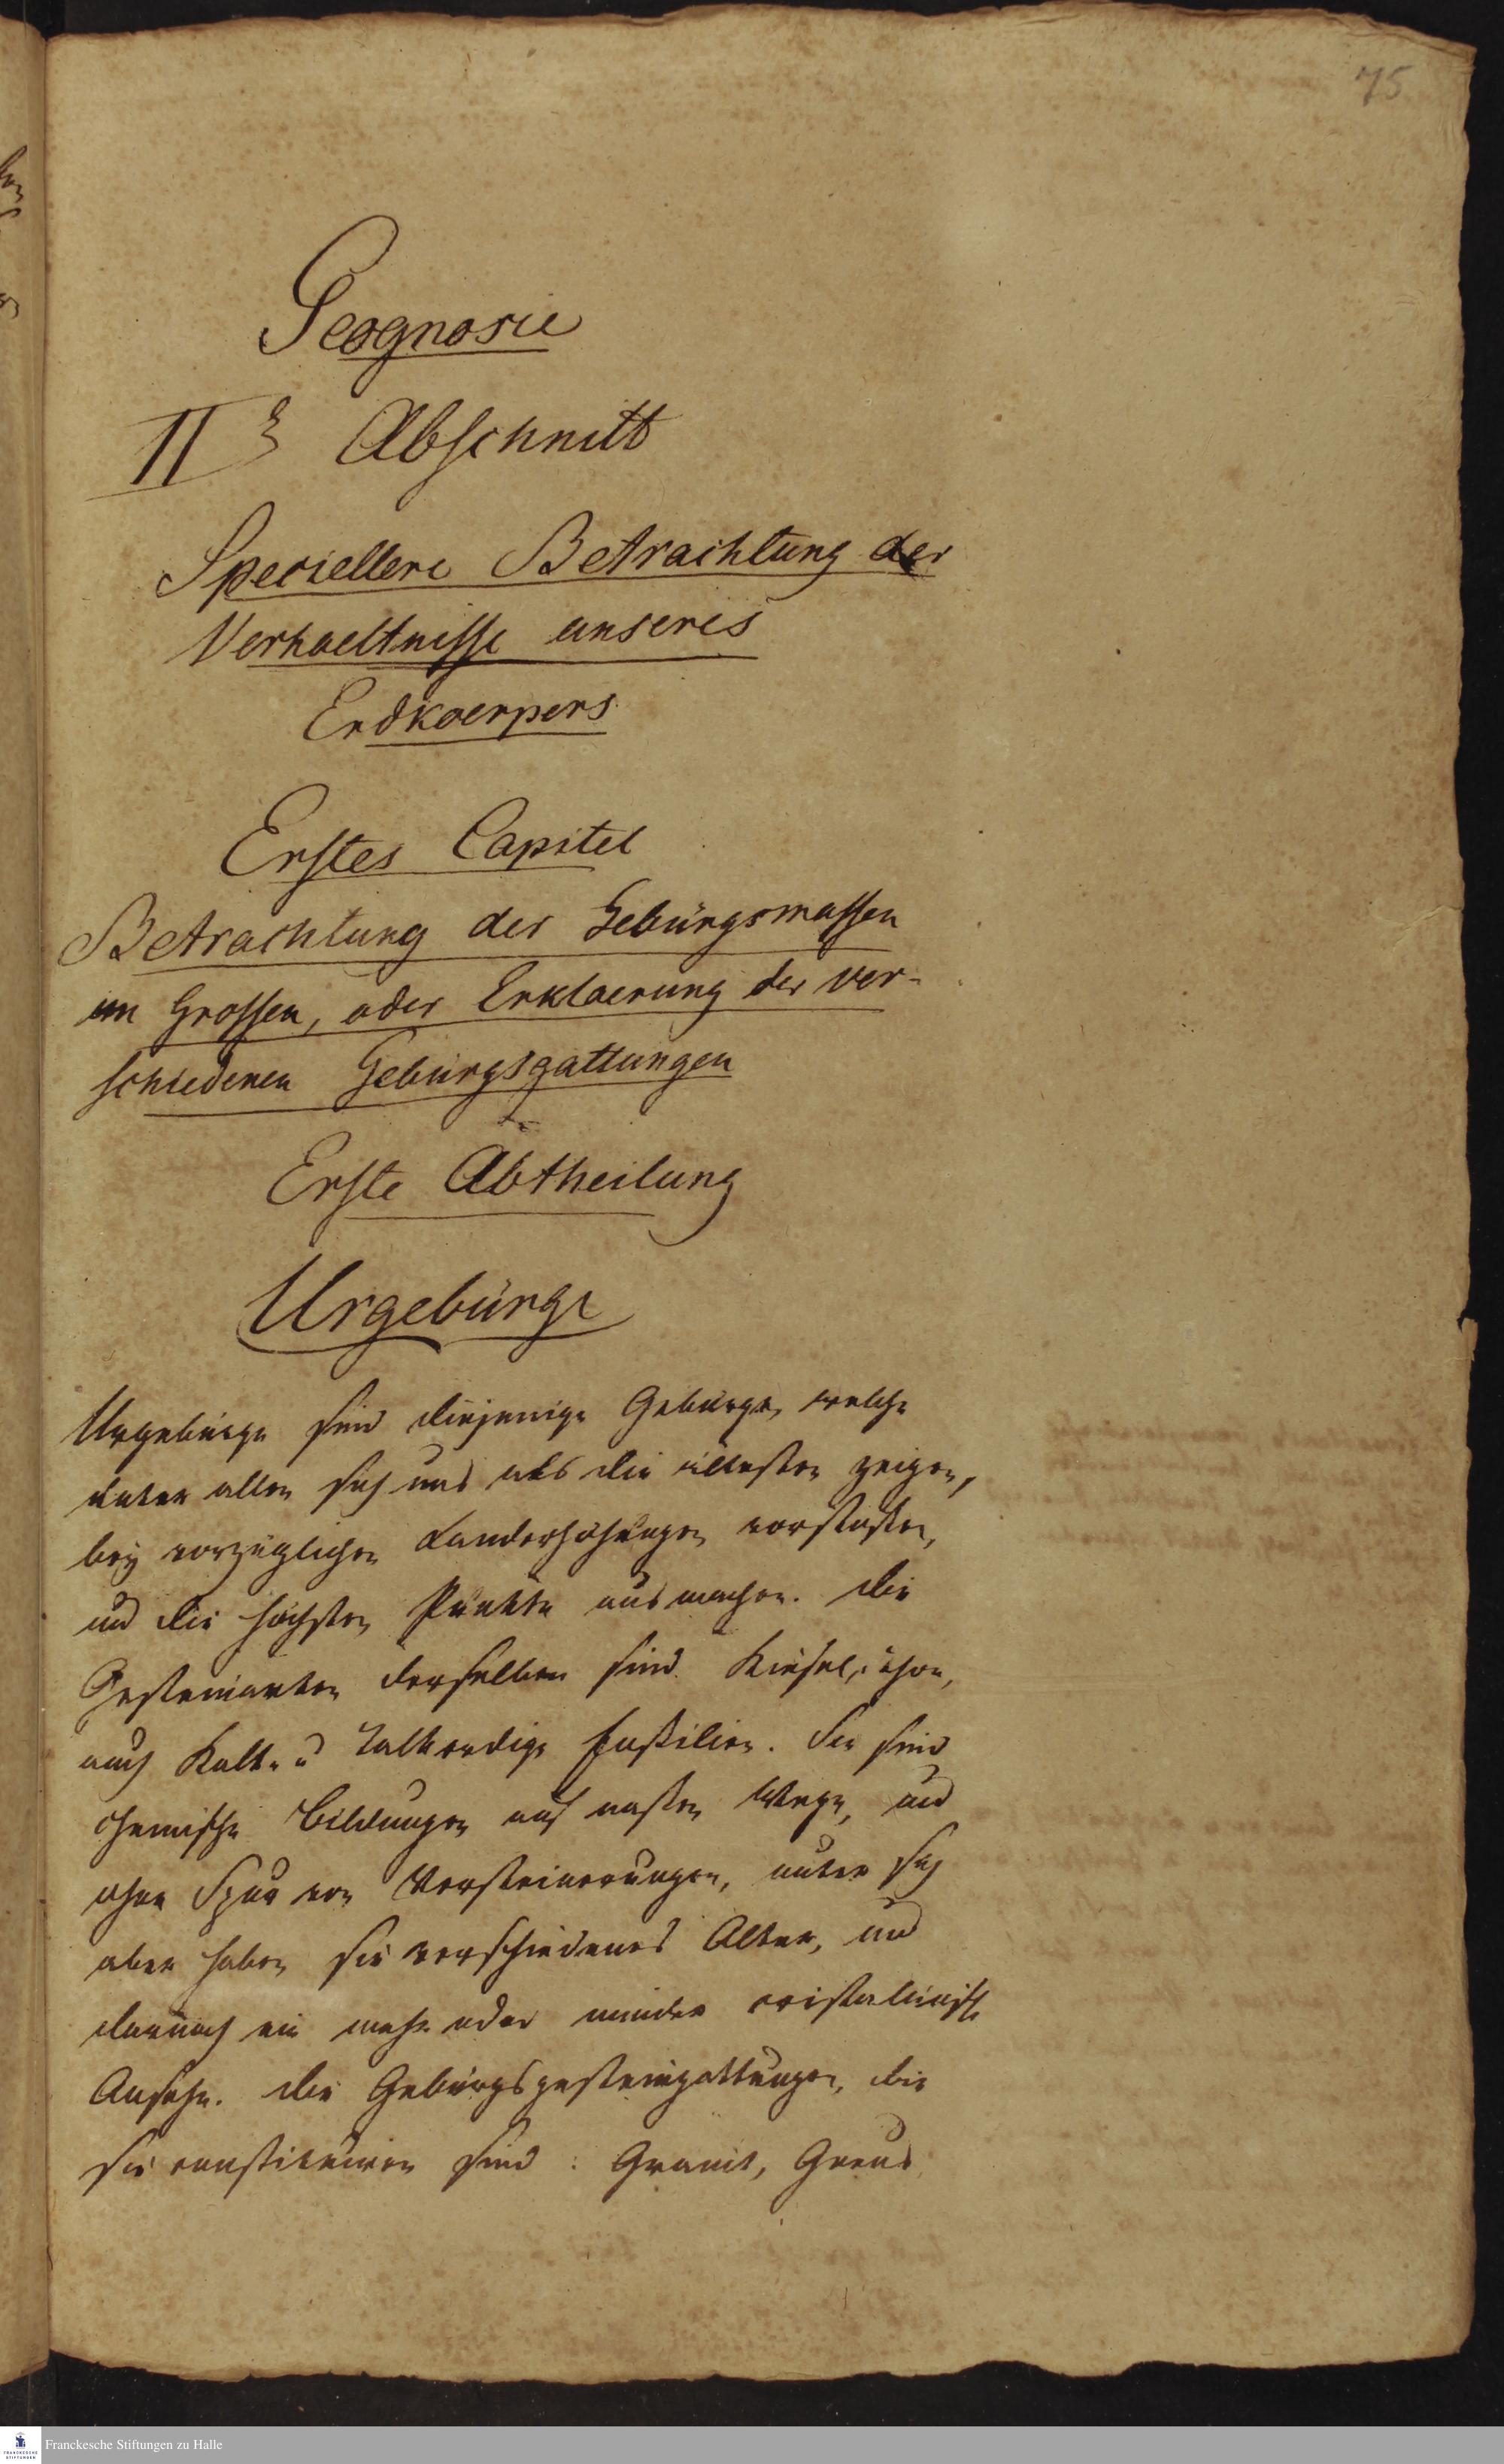 75
Geognosie
IIr Abschnitt
Speciellere Betrachtung der
Verhaeltnisse unseres
Erdkoerpers.
Erstes Capitel
Betrachtung der Gebürgsmassen
im Grossen, oder Erklaerung der ver-
schiedenen Gebürgsgattungen
Erste Abtheilung
Urgebürge
Urgebürge sind diejenige Gebürge, welche
unter allen sich uns als die ältesten zeigen,
bey vorzüglichen Landerhöhungen vorstossen,
und die höchsten Punkte ausmachen. Die
Gesteinarten derselben sind Kiesel, thon,
auch Kalk- u talkerdige Fossilien. Sie sind
chemische Bildungen auf nassen Wege, und
ohne Spur von Versteinerungen, unter sich
aber haben sie verschiedenes Alter, und
darnach ein mehr oder minder cristallinisch
Ansehn. Die Gebürgsgesteingattungen, die
sie constituiren sind: Granit, Gneus
Franckesche Stiftungen zu Halle